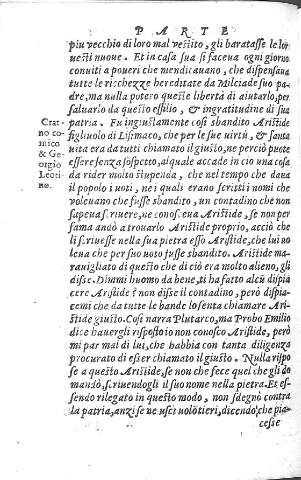 PARTE
piu vecchio di loro mal vestito, gli baratasse le lor
vesti nuove. Et in casa sua si faceua ogni giorno
conuiti a poueri che mendicauano, che dispensaua
tutte le ricchezze hereditate da Milciade suo pa-
dre, ma nulla potero queste liberta di aiutarlo, per
saluarlo da questo essilio, & ingratitudine di sua
patria. Fu ingiustamente cosi sbandito Aristide
figliuolo di Lisimaco, che per le sue virtù, & santa
vita era da tutti chiamato il giusto, ne perciò puote
essere senza sospetto, al quale accade in ciò una cosa
da rider molto stupenda, che nel tempo che daua
il popolo i voti, ne i quali erano scritti i nomi che
voleuano che fusse sbandito, un contadino che non
sapeua scriuere, ne conosceua Aristide, se non per
fama andò a trouarlo Aristide proprio, acciò che
li scriuesse nella sua pietra esso Aristide, che lui uo
leua che per suo uoto fusse sbandito. Aristide ma-
rauigliato di questo che di ciò era molto alieno, gli
disse. Dimmi huomo da bene, ti ha fatto alcũ dispia
cere Aristide? non disse il contadino, però dispia-
cemi che da tutte le bande lo senta chiamare Ari-
stide giusto. Cosi narra Plutarco, ma Probo Emilio
dice hauergli risposto io non conosco Aristide, però
mi par mal di lui, che habbia con tanta diligenza
procurato di esser chiamato il giusto. Nulla rispo
se a questo Aristide, se non che fece quel che gli do
mandò, scriuendogli il suo nome nella pietra. Et es-
sendo rilegato in questo modo, non sdegnò contra
la patria, anzi se ne uscì uolõtieri, dicendo, che pia-
cesse
Crat-
no co-
mico
& Ge-
orgio
Leoti
no.